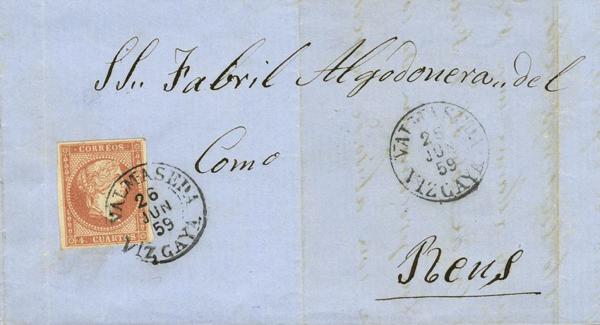 SS.. Fabril Algodonera.. del
Como
Reus
CORREOS
4 CUARTOS
VALMASEDA
26
JUN
59
VIZCAYA
VALMASEDA
26
JUN
59
VIZCAYA